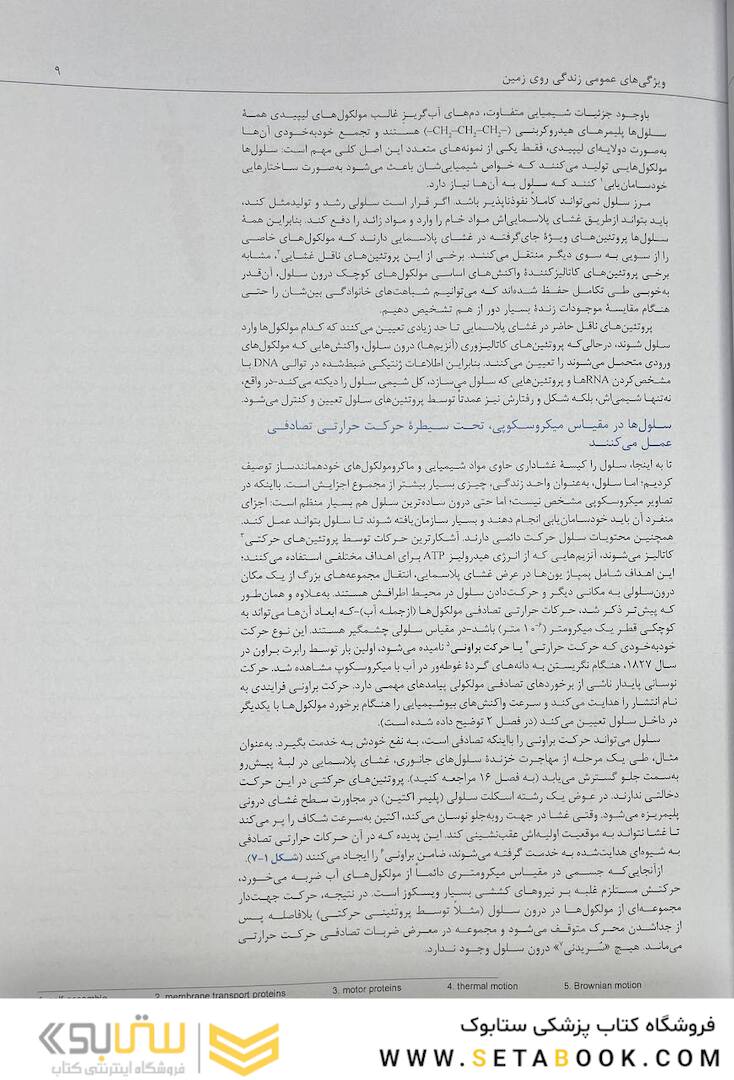 ویژگی‌های عمومی زندگی روی زمین
۹
باوجود جزئیات شیمیایی متفاوت، دم‌های آب‌گریز غالب مولکول‌های لیپیدی همهٔ
سلول‌ها پلیمرهای هیدروکربنی (–CH₂–CH₂–CH₂–) هستند و تجمع خودبه‌خودی آن‌ها
به‌صورت دولایه‌ای لیپیدی، فقط یکی از نمونه‌های متعدد این اصل کلی مهم است: سلول‌ها
مولکول‌هایی تولید می‌کنند که خواص شیمیایی‌شان باعث می‌شود به‌صورت ساختارهایی
خودسامان‌یابی¹ کنند که سلول به آن‌ها نیاز دارد.
مرز سلول نمی‌تواند کاملاً نفوذناپذیر باشد. اگر قرار است سلولی رشد و تولیدمثل کند،
باید بتواند ازطریق غشای پلاسمایی‌اش مواد خام را وارد و مواد زائد را دفع کند. بنابراین همهٔ
سلول‌ها پروتئین‌های ویژهٔ جای‌گرفته در غشای پلاسمایی دارند که مولکول‌های خاصی
را از سویی به سوی دیگر منتقل می‌کنند. برخی از این پروتئین‌های ناقل غشایی²، مشابه
برخی پروتئین‌های کاتالیزکنندهٔ واکنش‌های اساسی مولکول‌های کوچک درون سلول، آن‌قدر
به‌خوبی طی تکامل حفظ شده‌اند که می‌توانیم شباهت‌های خانوادگی بین‌شان را حتی
هنگام مقایسهٔ موجودات زندهٔ بسیار دور از هم تشخیص دهیم.
پروتئین‌های ناقل حاضر در غشای پلاسمایی تا حد زیادی تعیین می‌کنند که کدام مولکول‌ها وارد
سلول شوند، درحالی‌که پروتئین‌های کاتالیزوری (آنزیم‌ها) درون سلول، واکنش‌هایی که مولکول‌های
ورودی متحمل می‌شوند را تعیین می‌کنند. بنابراین اطلاعات ژنتیکی ضبط‌شده در توالی DNA با
مشخص‌کردن RNAها و پروتئین‌هایی که سلول می‌سازد، کل شیمی سلول را دیکته می‌کند-در واقع،
نه‌تنها شیمی‌اش، بلکه شکل و رفتارش نیز عمدتاً توسط پروتئین‌های سلول تعیین و کنترل می‌شود.
سلول‌ها در مقیاس میکروسکوپی، تحت سیطرهٔ حرکت حرارتی تصادفی
عمل می‌کنند
تا به اینجا، سلول را کیسهٔ غشاداری حاوی مواد شیمیایی و ماکرومولکول‌های خودهمانندساز توصیف
کردیم؛ اما سلول، به‌عنوان واحد زندگی، چیزی بسیار بیشتر از مجموع اجزایش است. بااینکه در
تصاویر میکروسکوپی مشخص نیست؛ اما حتی درون ساده‌ترین سلول هم بسیار منظم است: اجزای
منفرد آن باید خودسامان‌یابی انجام دهند و بسیار سازمان‌یافته شوند تا سلول بتواند عمل کند.
همچنین محتویات سلول حرکت دائمی دارند. آشکارترین حرکات توسط پروتئین‌های حرکتی³
کاتالیز می‌شوند، آنزیم‌هایی که از انرژی هیدرولیز ATP برای اهداف مختلفی استفاده می‌کنند؛
این اهداف شامل پمپاژ یون‌ها در عرض غشای پلاسمایی، انتقال مجموعه‌های بزرگ از یک مکان
درون‌سلولی به مکانی دیگر و حرکت‌دادن سلول در محیط اطرافش هستند. به‌علاوه و همان‌طور
که پیش‌تر ذکر شد، حرکات حرارتی تصادفی مولکول‌ها (ازجمله آب)-که ابعاد آن‌ها می‌تواند به
کوچکی قطر یک میکرومتر (۱۰⁻⁶ متر) باشد-در مقیاس سلولی چشمگیر هستند. این نوع حرکت
خودبه‌خودی که حرکت حرارتی⁴ یا حرکت براونی⁵ نامیده می‌شود، اولین بار توسط رابرت براون در
سال ۱۸۲۷، هنگام نگریستن به دانه‌های گردهٔ غوطه‌ور در آب با میکروسکوپ مشاهده شد. حرکت
نوسانی پایدار ناشی از برخوردهای تصادفی مولکولی پیامدهای مهمی دارد. حرکت براونی فرایندی به
نام انتشار را هدایت می‌کند و سرعت واکنش‌های بیوشیمیایی را هنگام برخورد مولکول‌ها با یکدیگر
در داخل سلول تعیین می‌کند (در فصل ۲ توضیح داده شده است).
سلول می‌تواند حرکت براونی را بااینکه تصادفی است، به نفع خودش به خدمت بگیرد. به‌عنوان
مثال، طی یک مرحله از مهاجرت خزندهٔ سلول‌های جانوری، غشای پلاسمایی در لبهٔ پیش‌رو
به‌سمت جلو گسترش می‌یابد (به فصل ۱۶ مراجعه کنید). پروتئین‌های حرکتی در این حرکت
دخالتی ندارند. در عوض یک رشته اسکلت سلولی (پلیمر اکتین) در مجاورت سطح غشای درونی
پلیمریزه می‌شود. وقتی غشا در جهت روبه‌جلو نوسان می‌کند، اکتین به‌سرعت شکاف را پر می‌کند
تا غشا نتواند به موقعیت اولیه‌اش عقب‌نشینی کند. این پدیده که در آن حرکات حرارتی تصادفی
به شیوه‌ای هدایت‌شده به خدمت گرفته می‌شوند، ضامن براونی⁶ را ایجاد می‌کنند (شکل ۱-۷).
ازآنجایی‌که جسمی در مقیاس میکرومتری دائماً از مولکول‌های آب ضربه می‌خورد،
حرکتش مستلزم غلبه بر نیروهای کششی بسیار ویسکوز است. در نتیجه، حرکت جهت‌دار
مجموعه‌ای از مولکول‌ها در درون سلول (مثلاً توسط پروتئینی حرکتی) بلافاصله پس
از جداشدن محرک متوقف می‌شود و مجموعه در معرض ضربات تصادفی حرکت حرارتی
می‌ماند. هیچ «سُریدنی⁷» درون سلول وجود ندارد.
2. membrane transport proteins 3. motor proteins 4. thermal motion 5. Brownian motion
فروشگاه کتاب پزشکی ستابوک
WWW.SETABOOK.COM
ستابوک
فروشگاه اینترنتی کتاب